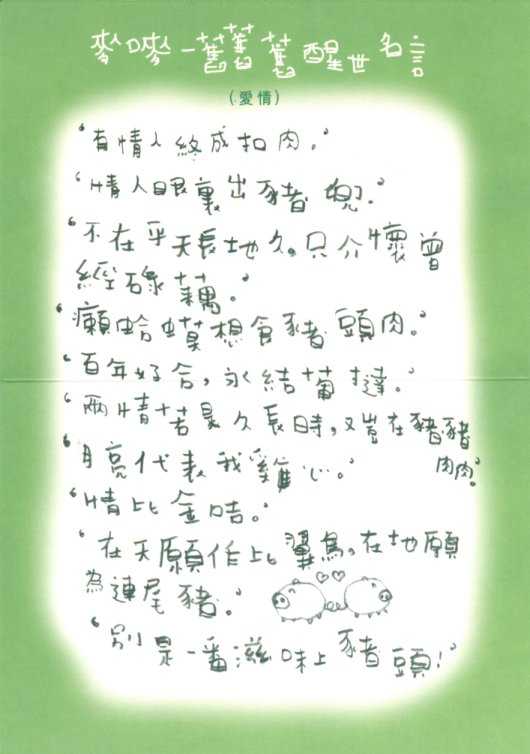 麥嘜一舊舊舊醒世名言
(愛情)
“有情人終成扣肉。”
“情人眼裏出豬 ”
“不在乎天長地久。只介懷曾
經碌藕。”
“癩蛤蟆想食豬頭肉。”
“百年好合，永結葡撻。”
“兩情若是久長時，又豈在豬豬
肉肉。”
“月亮代表我雞心。”
“情比金咭。”
“在天願作比翼鳥。在地願
為連尾豬。”
“別是一番滋味上豬頭！”